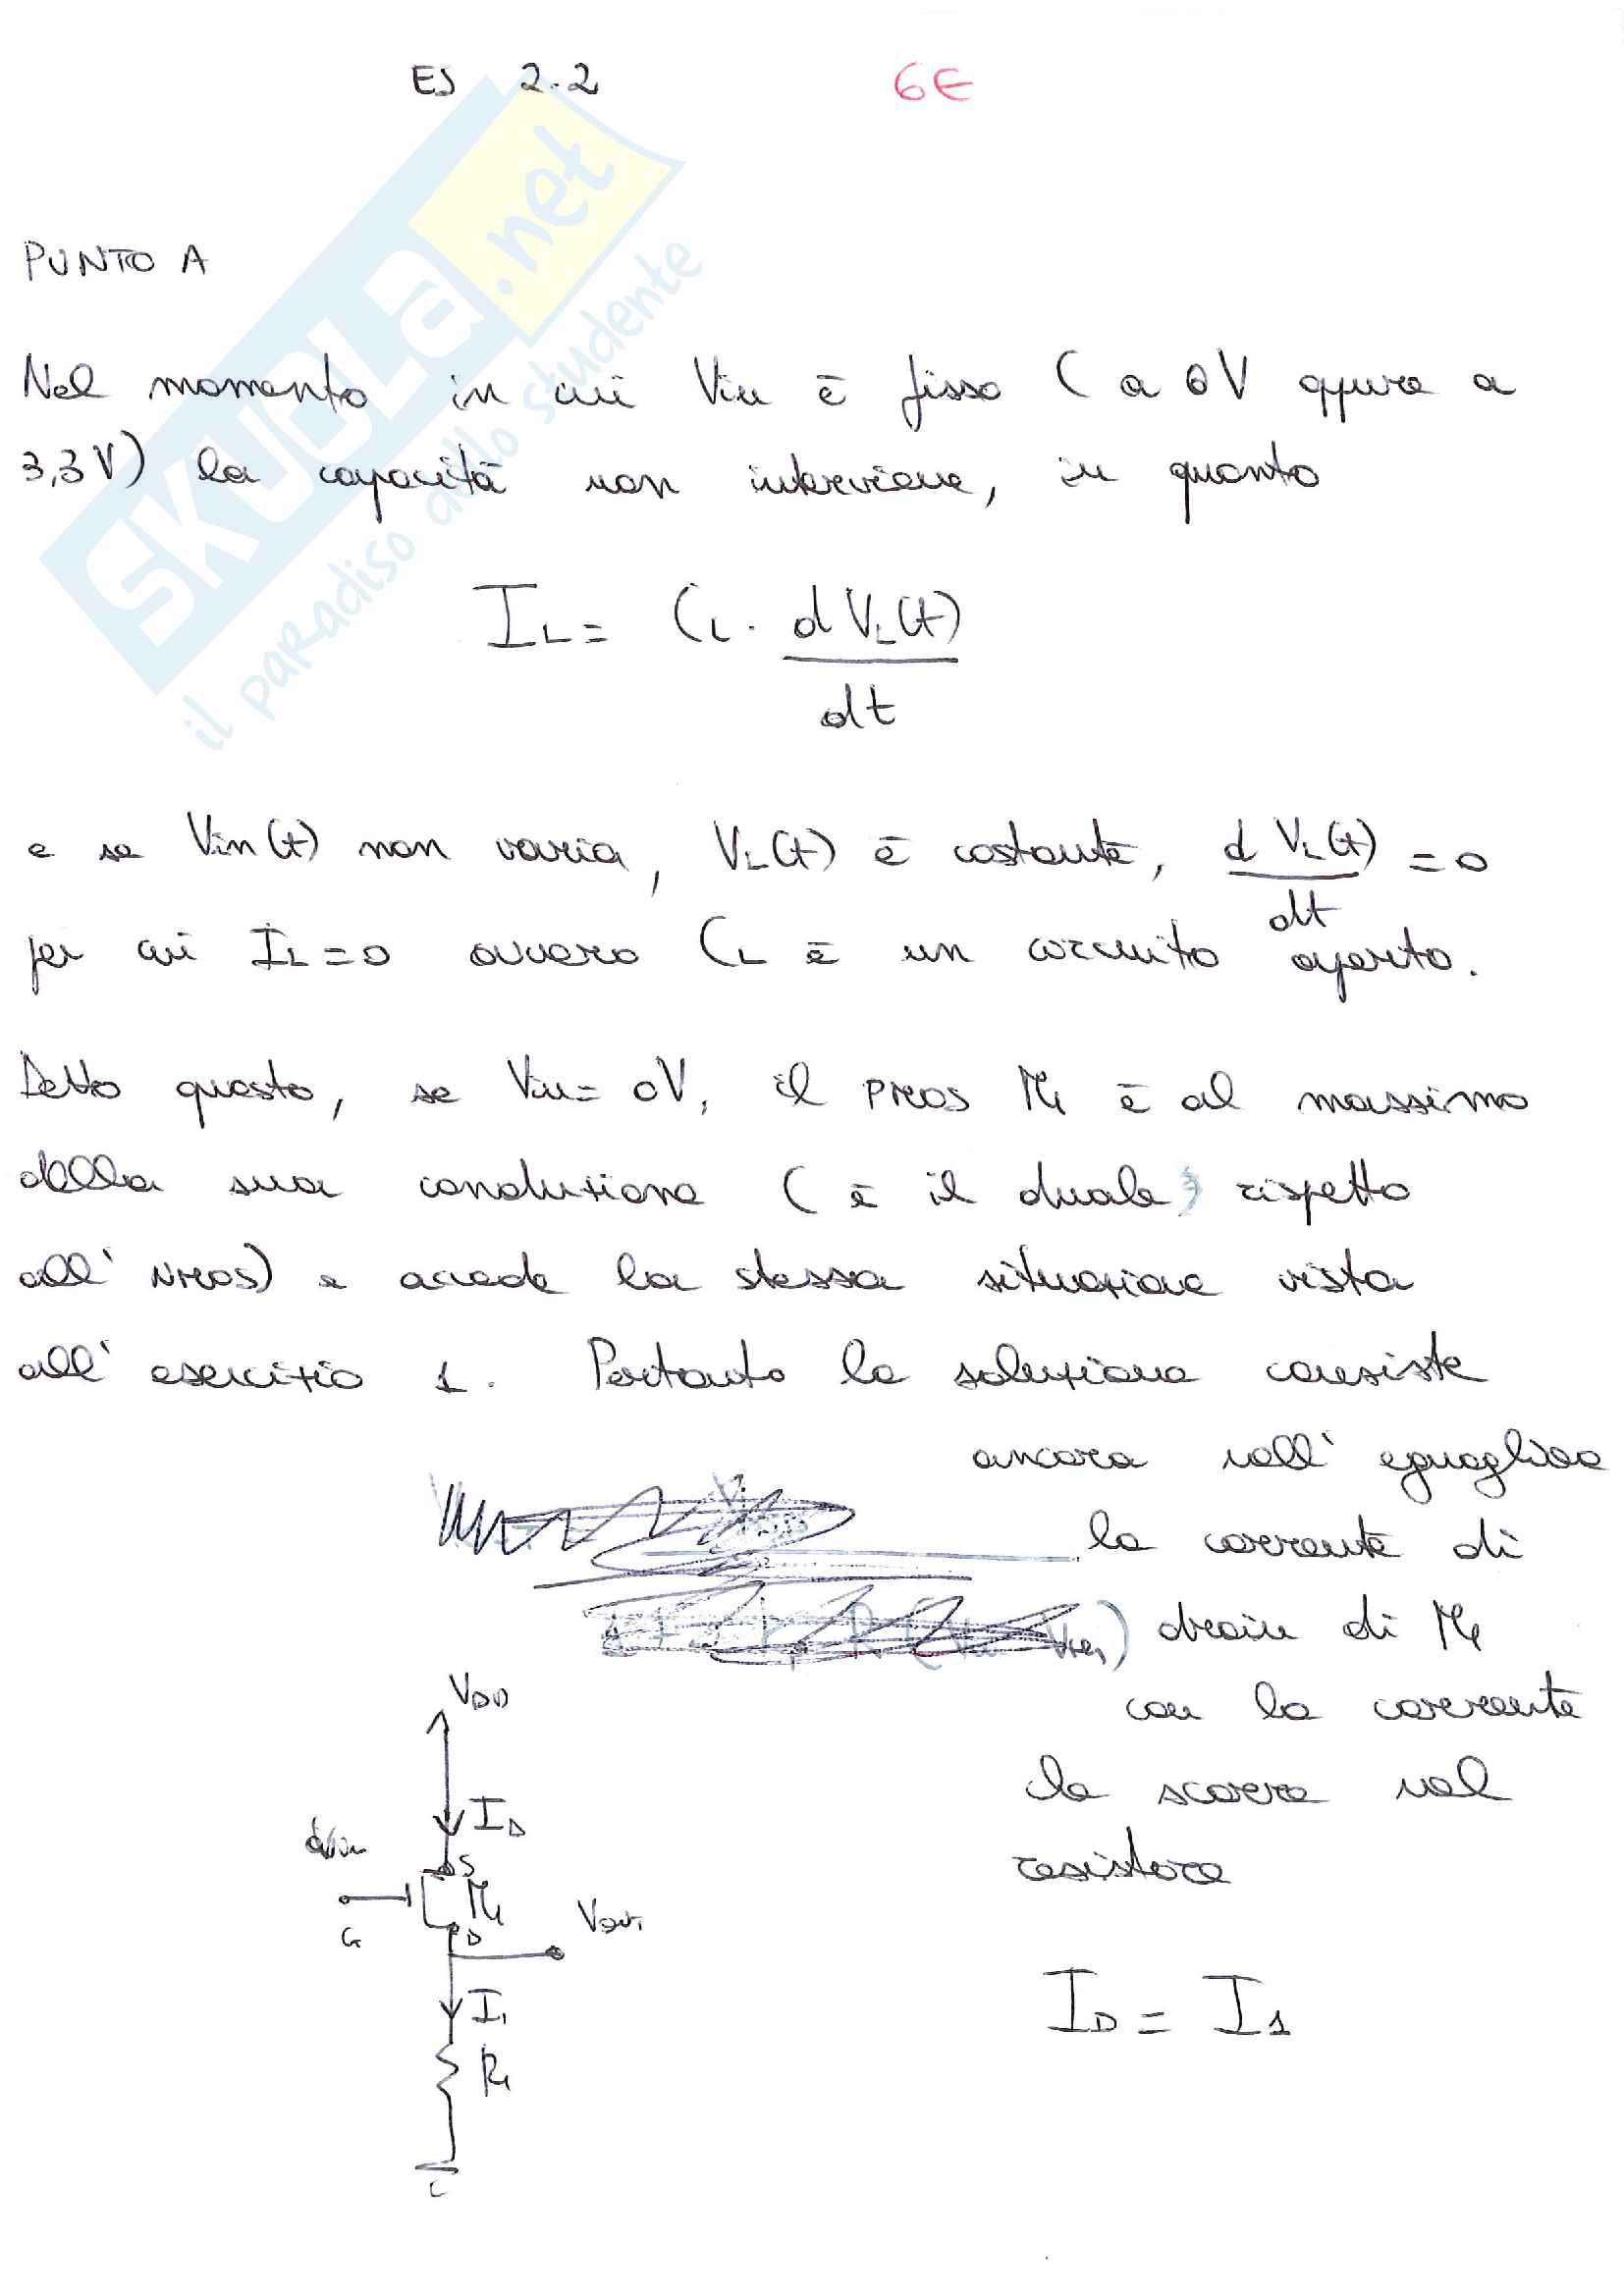 ES 2.2 6E
SKUOLA.net
il paradiso dello studente
PUNTO A
Nel momento in cui Vin è fisso ( a 0V oppure a
3,3V) la capacità non interviene, in quanto
IL = CL · dVL(t)
dt
e se Vin(t) non varia, VL(t) è costante, dVL(t) = 0
dt
per cui IL = 0 ovvero CL è un circuito aperto.
Detto questo, se Vin = 0V, il PMOS M1 è al massimo
della sua conduzione ( è il duale rispetto
all' NMOS) e accade la stessa situazione vista
all' esercizio 1. Pertanto la soluzione consiste
ancora nell' eguagliare
la corrente di
drain di M1
con la corrente
che scorre nel
resistore
VDD
ID
Vin
S
M1
G
D
VOUT
I1
R1
ID = I1